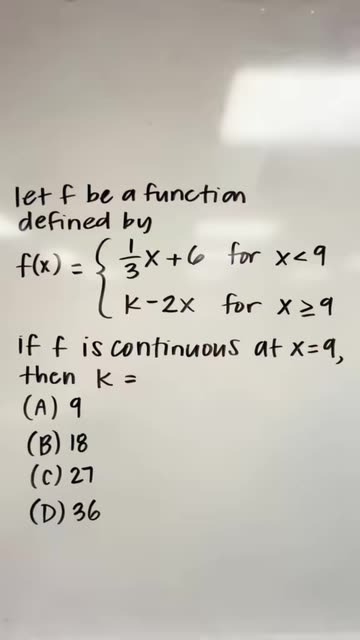 let f be a function
defined by
f(x) = { 1/3 x + 6 for x < 9
k - 2x for x ≥ 9
if f is continuous at x=9,
then k =
(A) 9
(B) 18
(C) 27
(D) 36